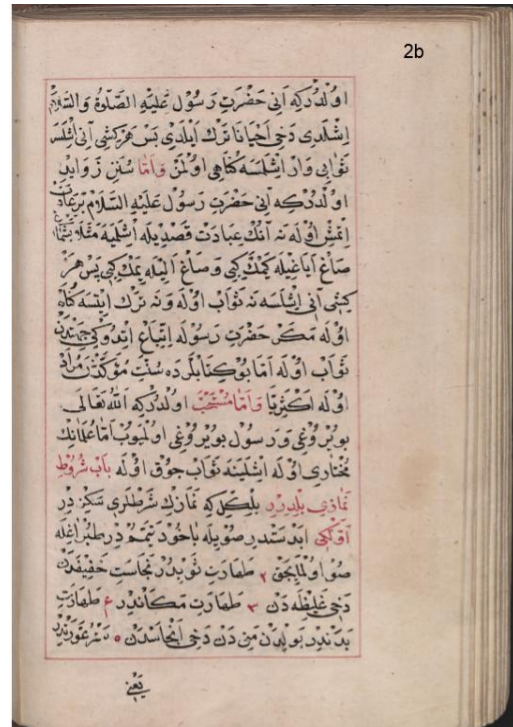 2b
اولدركه انى حضرت رسول عليه الصلوة والسلام
اشلدى دخى احيانا ترك ايلدى پس هركشى انى اشلسه
ثوابى وار اشلسه كناهى اولمز واما سنن زوايد
اولدركه انى حضرت رسول عليه السلام بر عادت
ايتمش اوله نه آنك عبادت قصديله اشليه مثلا بشماغى
صاغ اياغيله كيمك كبى و صاغ اليله يمك كبى پس هر
كشى آنى اشلسه نه ثواب اوله و نه ترك ايتسه كناه
اوله مكر حضرت رسوله اتباع ايتدوكى جهتدن
ثواب اوله اما بو كتابلرده سنت مؤكددن مراد
اوله اكثريا واما مستحب اولدركه الله تعالى
بويروغى و رسول بويروغى اولميوب اما علمانك
مختارى اوله اشلينه ثواب چوق اوله باب شروط
نمازى بلدرر بلكل كه نمازك شرطلرى سكزدر
اولكى ابدستدر صويله ياخود تيممدر طپراغله
صو اولمايجق ٢ طهارت ثوبدر نجاست خفيفدن
دخى غليظه دن ٣ طهارت مكاندر ٤ طهارت
بدندر بولدن منى دن دخى انجاسدن ٥ ستر عورتدر
يعنى